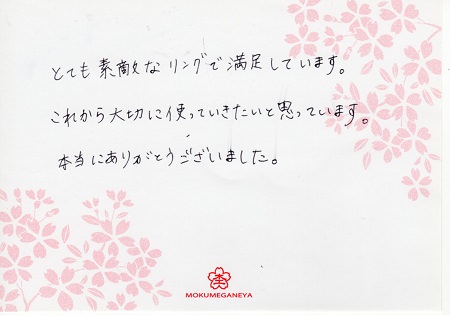 とても素敵なリングで満足しています。
これから大切に使っていきたいと思っています。
本当にありがとうございました。
MOKUMEGANEYA